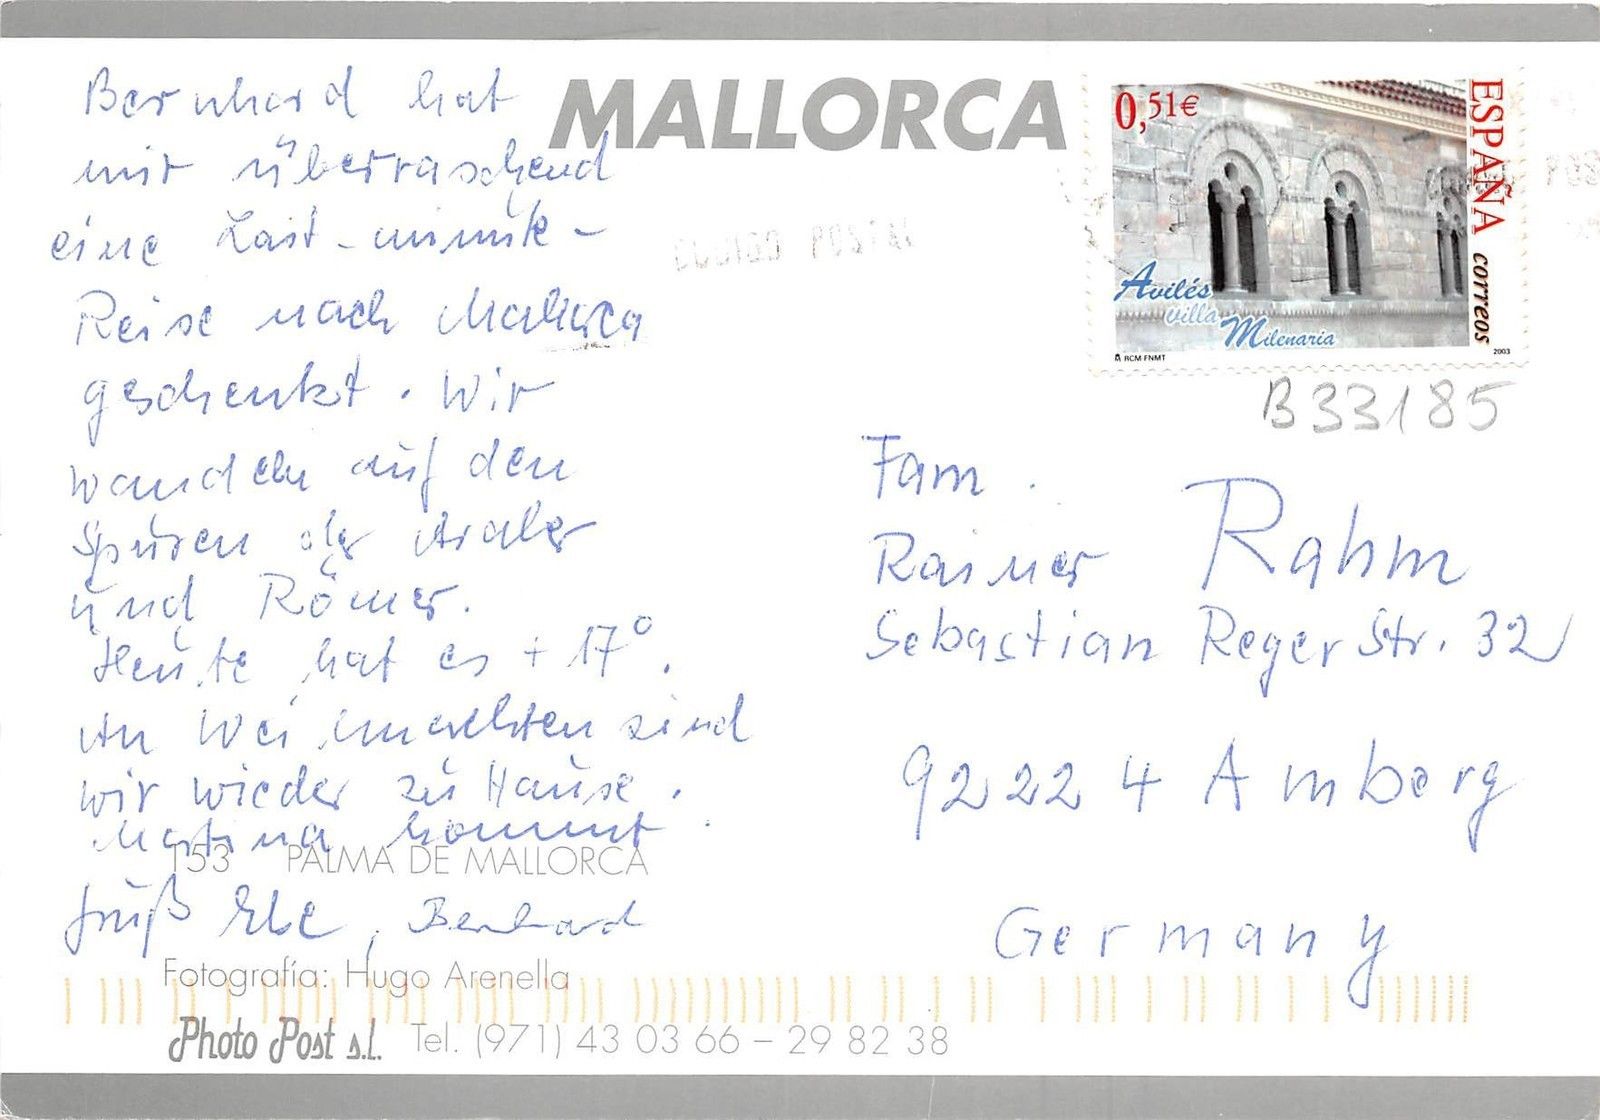 MALLORCA
Bernhard hat
mir überraschend
eine Last-minute-
Reise nach Mallorca
geschenkt. Wir
wandeln auf den
Spuren der Araber
und Römer.
Heute hat es +17°.
An Weihnachten sind
wir wieder zu Hause.
Martina kommt.
Gruß Bernhard
153 PALMA DE MALLORCA
Fotografía: Hugo Arenella
Photo Post s.l. Tel. (971) 43 03 66 – 29 82 38
CODIGO POSTAL
0,51€
ESPAÑA
correos
Avilés
villa
Milenaria
RCM FNMT
2003
B33185
Fam.
Rainer Rahm
Sebastian Reger Str. 32
92224 Amberg
Germany